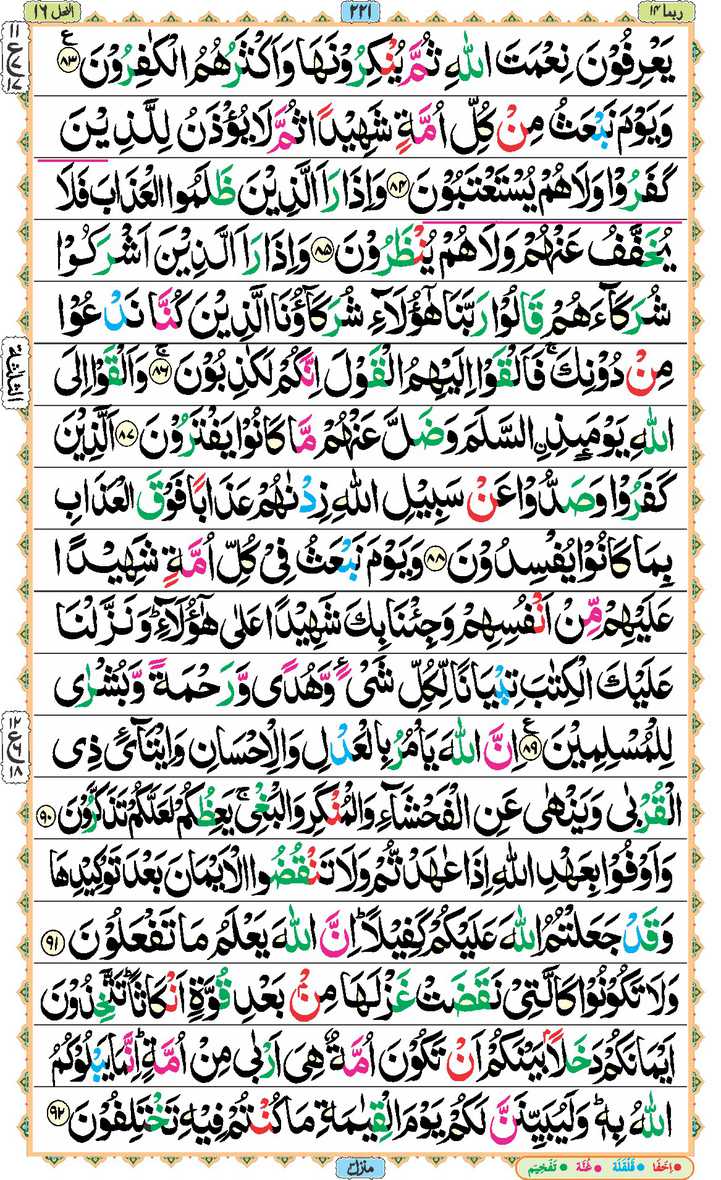 ربما ١٤
٢٢١
النحل ١٦
يَعْرِفُوْنَ نِعْمَتَ اللّٰهِ ثُمَّ يُنْكِرُوْنَهَا وَاَكْثَرُهُمُ الْكٰفِرُوْنَ ﴿٨٣﴾ ع
وَيَوْمَ نَبْعَثُ مِنْ كُلِّ اُمَّةٍ شَهِيْدًا ثُمَّ لَا يُؤْذَنُ لِلَّذِيْنَ
كَفَرُوْا وَلَا هُمْ يُسْتَعْتَبُوْنَ ﴿٨٤﴾ وَاِذَا رَاَ الَّذِيْنَ ظَلَمُوا الْعَذَابَ فَلَا
يُخَفَّفُ عَنْهُمْ وَلَا هُمْ يُنْظَرُوْنَ ﴿٨٥﴾ وَاِذَا رَاَ الَّذِيْنَ اَشْرَكُوْا
شُرَكَآءَهُمْ قَالُوْا رَبَّنَا هٰٓؤُلَآءِ شُرَكَآؤُنَا الَّذِيْنَ كُنَّا نَدْعُوْا
مِنْ دُوْنِكَ ۚ فَاَلْقَوْا اِلَيْهِمُ الْقَوْلَ اِنَّكُمْ لَكٰذِبُوْنَ ۚ ﴿٨٦﴾ وَاَلْقَوْا اِلَى
اللّٰهِ يَوْمَئِذِ ِۨالسَّلَمَ وَضَلَّ عَنْهُمْ مَّا كَانُوْا يَفْتَرُوْنَ ﴿٨٧﴾ اَلَّذِيْنَ
كَفَرُوْا وَصَدُّوْا عَنْ سَبِيْلِ اللّٰهِ زِدْنٰهُمْ عَذَابًا فَوْقَ الْعَذَابِ
بِمَا كَانُوْا يُفْسِدُوْنَ ﴿٨٨﴾ وَيَوْمَ نَبْعَثُ فِيْ كُلِّ اُمَّةٍ شَهِيْدًا
عَلَيْهِمْ مِّنْ اَنْفُسِهِمْ وَجِئْنَا بِكَ شَهِيْدًا عَلٰى هٰٓؤُلَآءِ ؕ وَنَزَّلْنَا
عَلَيْكَ الْكِتٰبَ تِبْيَانًا لِّكُلِّ شَيْءٍ وَّهُدًى وَّرَحْمَةً وَّبُشْرٰى
لِلْمُسْلِمِيْنَ ﴿٨٩﴾ ع اِنَّ اللّٰهَ يَاْمُرُ بِالْعَدْلِ وَالْاِحْسَانِ وَاِيْتَآئِ ذِي
الْقُرْبٰى وَيَنْهٰى عَنِ الْفَحْشَآءِ وَالْمُنْكَرِ وَالْبَغْيِ ۚ يَعِظُكُمْ لَعَلَّكُمْ تَذَكَّرُوْنَ ﴿٩٠﴾
وَاَوْفُوْا بِعَهْدِ اللّٰهِ اِذَا عٰهَدْتُّمْ وَلَا تَنْقُضُوا الْاَيْمَانَ بَعْدَ تَوْكِيْدِهَا
وَقَدْ جَعَلْتُمُ اللّٰهَ عَلَيْكُمْ كَفِيْلًا ؕ اِنَّ اللّٰهَ يَعْلَمُ مَا تَفْعَلُوْنَ ﴿٩١﴾
وَلَا تَكُوْنُوْا كَالَّتِيْ نَقَضَتْ غَزْلَهَا مِنْۢ بَعْدِ قُوَّةٍ اَنْكَاثًا ؕ تَتَّخِذُوْنَ
اَيْمَانَكُمْ دَخَلًاۢ بَيْنَكُمْ اَنْ تَكُوْنَ اُمَّةٌ هِيَ اَرْبٰى مِنْ اُمَّةٍ ؕ اِنَّمَا يَبْلُوْكُمُ
اللّٰهُ بِهٖ ؕ وَلَيُبَيِّنَنَّ لَكُمْ يَوْمَ الْقِيٰمَةِ مَا كُنْتُمْ فِيْهِ تَخْتَلِفُوْنَ ﴿٩٢﴾
الثلثة
منزل ٣
اِخفَا قَلْقَلَة غُنَّة تَفْخِيم